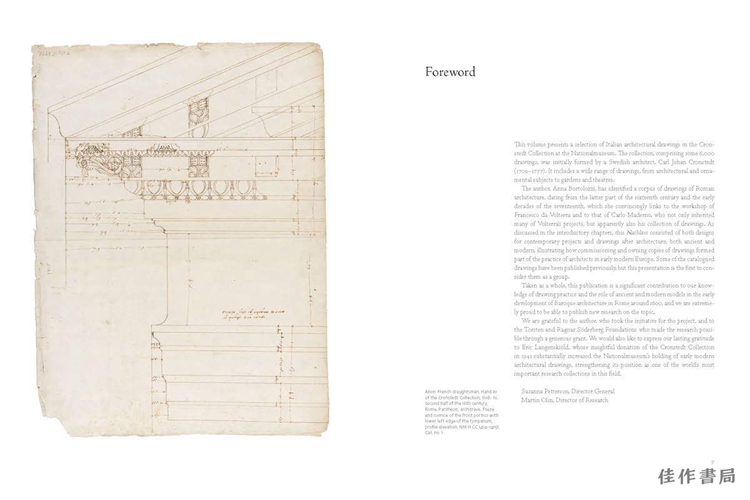 Foreword
This volume presents a selection of Italian architectural drawings in the Cron-
stedt Collection at the Nationalmuseum. The collection, comprising some 6,000
drawings, was initially formed by a Swedish architect, Carl Johan Cronstedt
(1709–1777). It includes a wide range of drawings, from architectural and orna-
mental subjects to gardens and theatre.
The author, Anna Bortolozzi, has identified a corpus of drawings of Roman
architecture, dating from the latter part of the sixteenth century and the early
decades of the seventeenth, which she convincingly links to the workshop of
Francesco da Volterra and to that of Carlo Maderno, who not only inherited
many of Volterra's projects, but apparently also his collection of drawings. As
discussed in the introductory chapters, this Nachlass consisted of both designs
for contemporary projects and drawings after architecture, both ancient and
modern, illustrating how commissioning and owning copies of drawings formed
part of the practice of architects in early modern Europe. Some of the catalogued
drawings have been published previously, but this presentation is the first to con-
sider them as a group.
Taken as a whole, this publication is a significant contribution to our know-
ledge of drawing practice and the role of ancient and modern models in the early
development of Baroque architecture in Rome around 1600, and we are extreme-
ly proud to be able to publish new research on the topic.
We are grateful to the author, who took the initiative for the project, and to
the Torsten and Ragnar Söderberg Foundations who made the research possi-
ble through a generous grant. We would also like to express our lasting gratitude
to Eric Langenskiöld, whose insightful donation of the Cronstedt Collection
in 1941 substantially increased the Nationalmuseum's holding of early modern
architectural drawings, strengthening its position as one of the world's most
important research collections in this field.
Susanna Pettersson, Director General
Martin Olin, Director of Research
Anon. French draughtsman, Hand A1
of the Cronstedt Collection,
second half of the 16th century,
Rome, Pantheon, architrave, frieze
and cornice of the front portico with
lower left edge of the tympanum,
profile elevation, NM H CC
Cat. no. 1
7
佳作書局